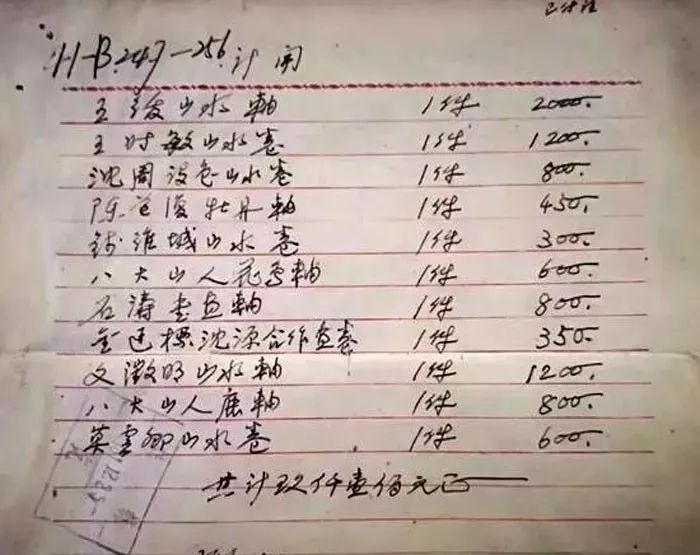 H-B.247-256 计開
王绂山水軸 1件 2000.
王时敏山水卷 1件 1200.
沈周设色山水卷 1件 800.
陈道復牡丹軸 1件 450.
钱维城山水卷 1件 300.
八大山人花鸟軸 1件 600.
石涛書画軸 1件 800.
金廷標沈源合作画卷 1件 350.
文徵明山水軸 1件 1200.
八大山人鹿軸 1件 800.
莫雲卿山水卷 1件 600.
共计玖仟壹佰元正